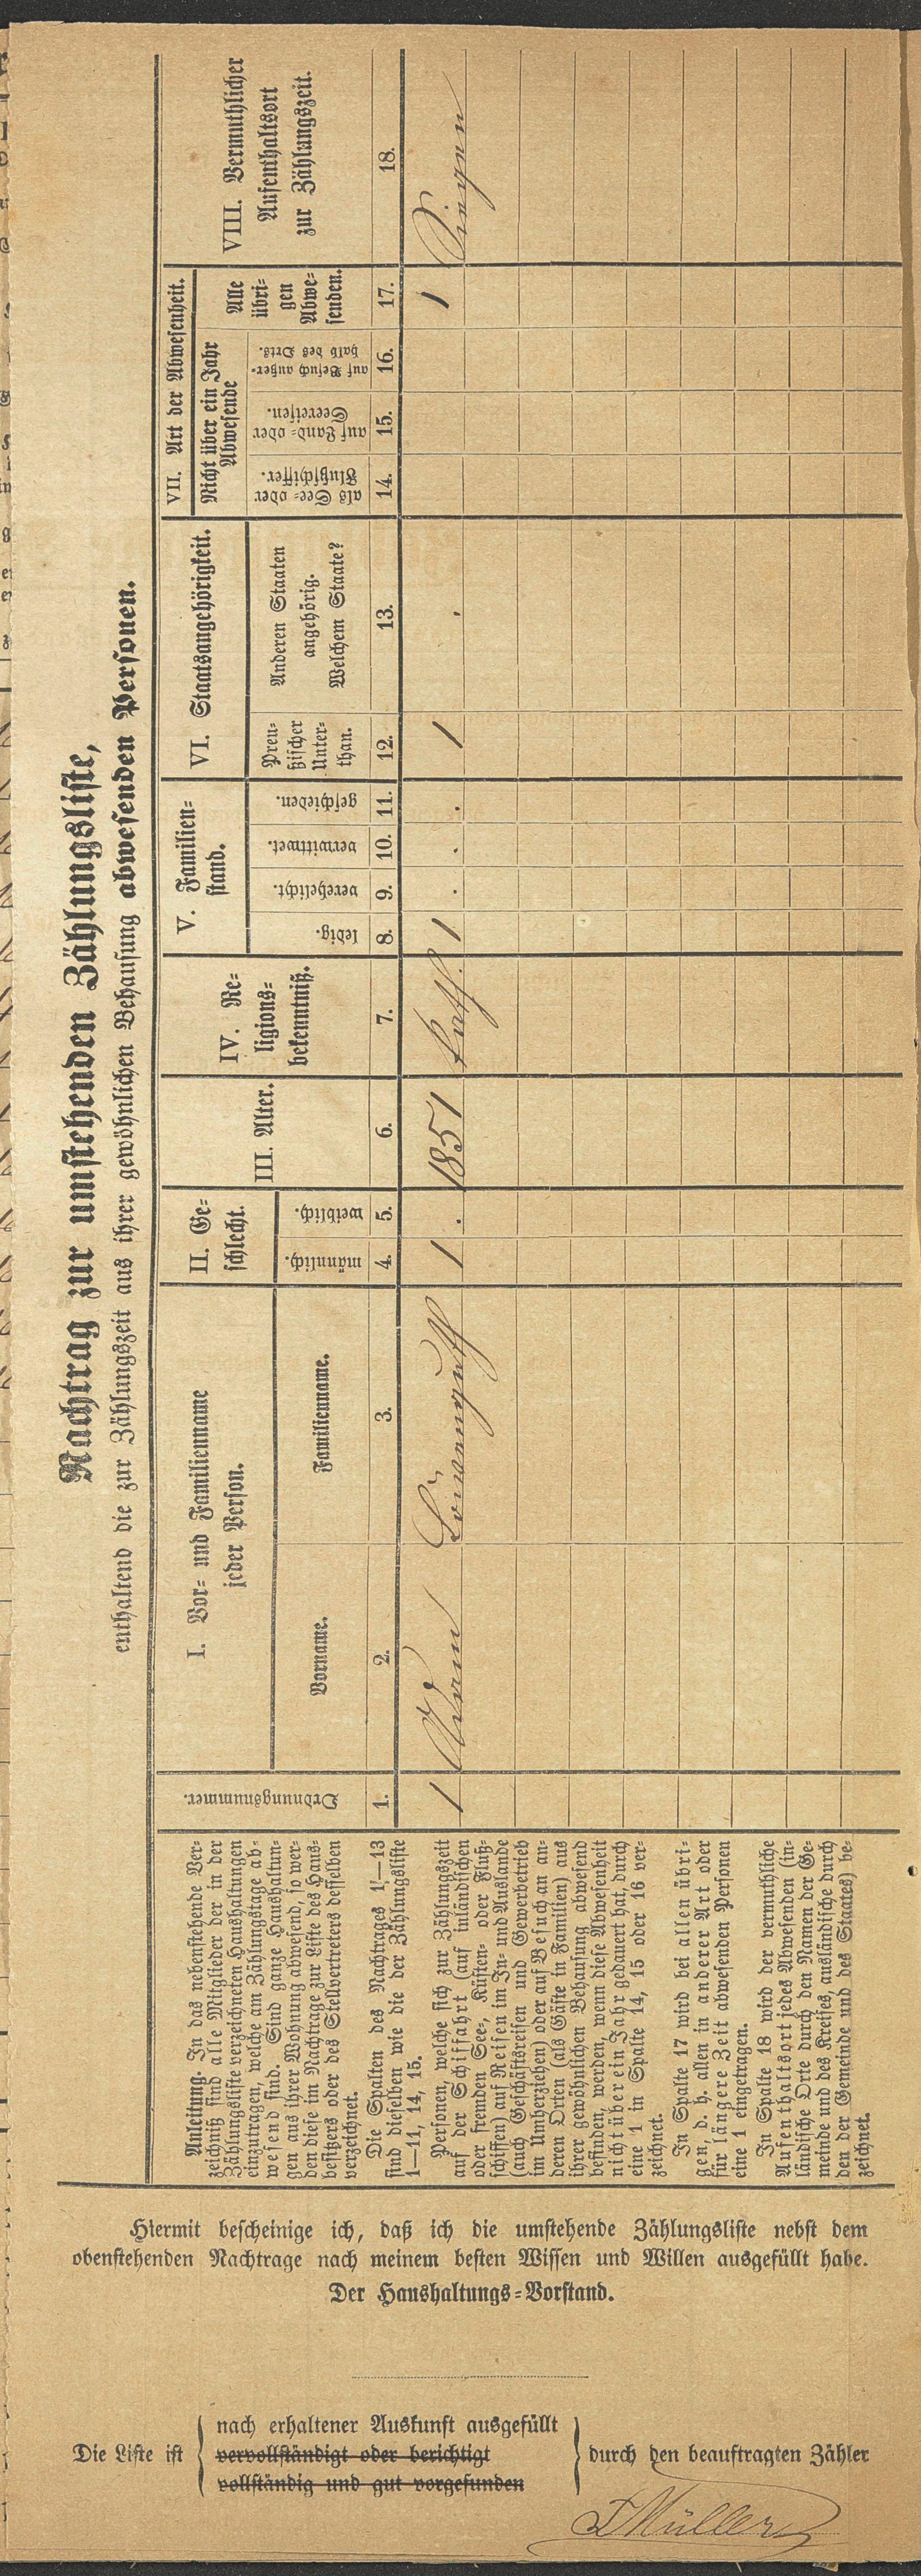 Nachtrag zur umstehenden Zählungsliste,
enthaltend die zur Zählungszeit aus ihrer gewöhnlichen Behausung abwesenden Personen.
Anleitung. In das nebenstehende Ver-
zeichniß sind alle Mitglieder der in der
Zählungsliste verzeichneten Haushaltungen
einzutragen, welche am Zählungstage ab-
wesend sind. Sind ganze Haushaltun-
gen aus ihrer Wohnung abwesend, so wer-
den diese im Nachtrage zur Liste des Haus-
besitzers oder des Stellvertreters desselben
verzeichnet.
Die Spalten des Nachtrages 1—13
sind dieselben wie die der Zählungsliste
1—11, 14, 15.
Personen, welche sich zur Zählungszeit
auf der Schiffahrt (auf inländischen
oder fremden See-, Küsten- oder Fluß-
schiffen) auf Reisen im In- und Auslande
(auch Geschäftsreisen und Gewerbetrieb
im Umherziehen) oder auf Besuch an an-
deren Orten (als Gäste in Familien) aus
ihrer gewöhnlichen Behausung abwesend
befinden, werden, wenn diese Abwesenheit
nicht über ein Jahr gedauert hat, durch
eine 1 in Spalte 14, 15 oder 16 ver-
zeichnet.
In Spalte 17 wird bei allen übri-
gen, d. h. allen in anderer Art oder
für längere Zeit abwesenden Personen
eine 1 eingetragen.
In Spalte 18 wird der vermuthliche
Aufenthaltsort jedes Abwesenden (in-
ländische Orte durch den Namen der Ge-
meinde und des Kreises, ausländische durch
den der Gemeinde und des Staates) be-
zeichnet.
Ordnungsnummer.
I. Vor- und Familienname
jeder Person.
Vorname.
Familienname.
II. Ge-
schlecht.
männlich.
weiblich.
III. Alter.
IV. Re-
ligions-
bekenntniß.
V. Familien-
stand.
ledig.
verehelicht.
verwittwet.
geschieden.
VI. Staatsangehörigkeit.
Preu-
ßischer
Unter-
than.
Anderen Staaten
angehörig.
Welchem Staate?
VII. Art der Abwesenheit.
Nicht über ein Jahr
Abwesende
als See- oder
Flußschiffer.
auf Land- oder
Seereisen.
auf Besuch außer-
halb des Orts.
Alle
übri-
gen
Abwe-
senden.
VIII. Vermuthlicher
Aufenthaltsort
zur Zählungszeit.
1. 2. 3. 4. 5. 6. 7. 8. 9. 10. 11. 12. 13. 14. 15. 16. 17. 18.
1 Adam Löwenguth 1 . 1851 kath. 1 . . . 1 . 1 Singen
Hiermit bescheinige ich, daß ich die umstehende Zählungsliste nebst dem
obenstehenden Nachtrage nach meinem besten Wissen und Willen ausgefüllt habe.
Der Haushaltungs-Vorstand.
nach erhaltener Auskunft ausgefüllt
Die Liste ist vervollständigt oder berichtigt durch den beauftragten Zähler
vollständig und gut vorgefunden
Müller